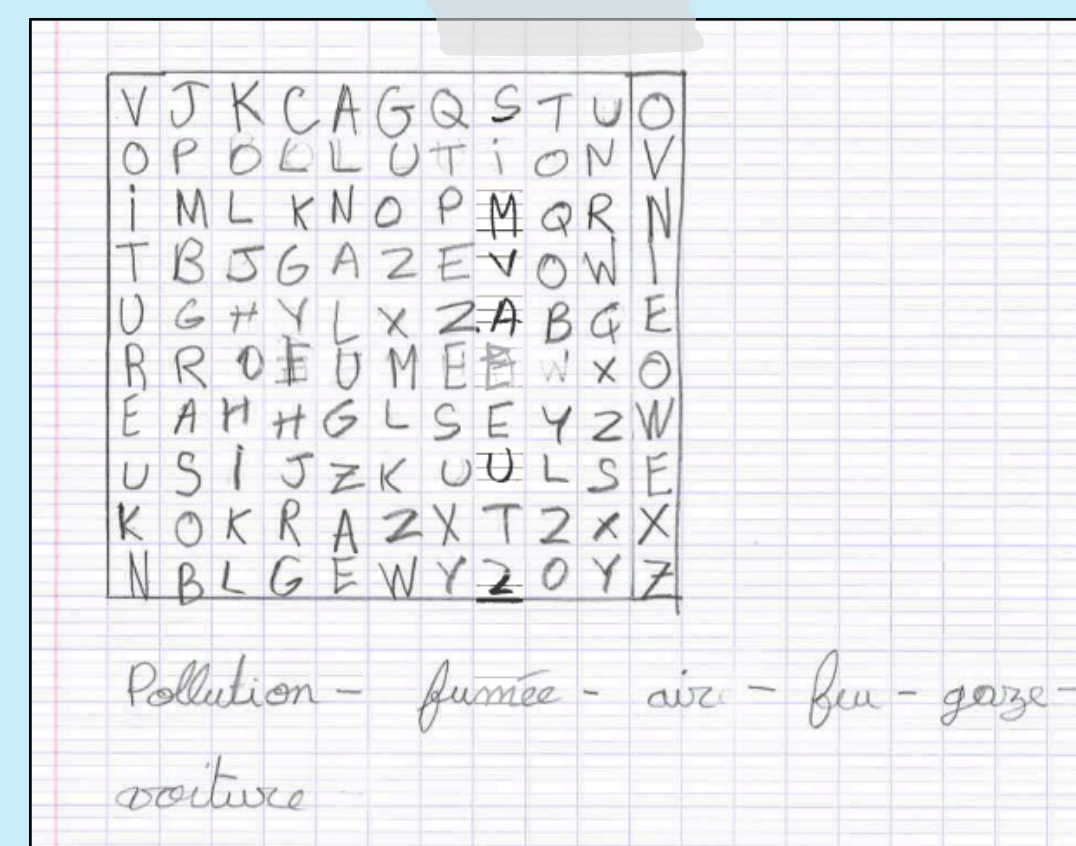 V J K C A G Q S T U O
O P O L L U T i O N V
i M L K N O P M Q R N
T B J G A Z E V O W I
U G H Y L X Z A B G E
R R O E U M E E W X O
E A H H G L S E Y Z W
U S I J Z K U U L S E
K O K R A Z X T Z X X
N B L G E W Y Z O Y Z
Pollution - fumée - air - feu - gaze -
voiture